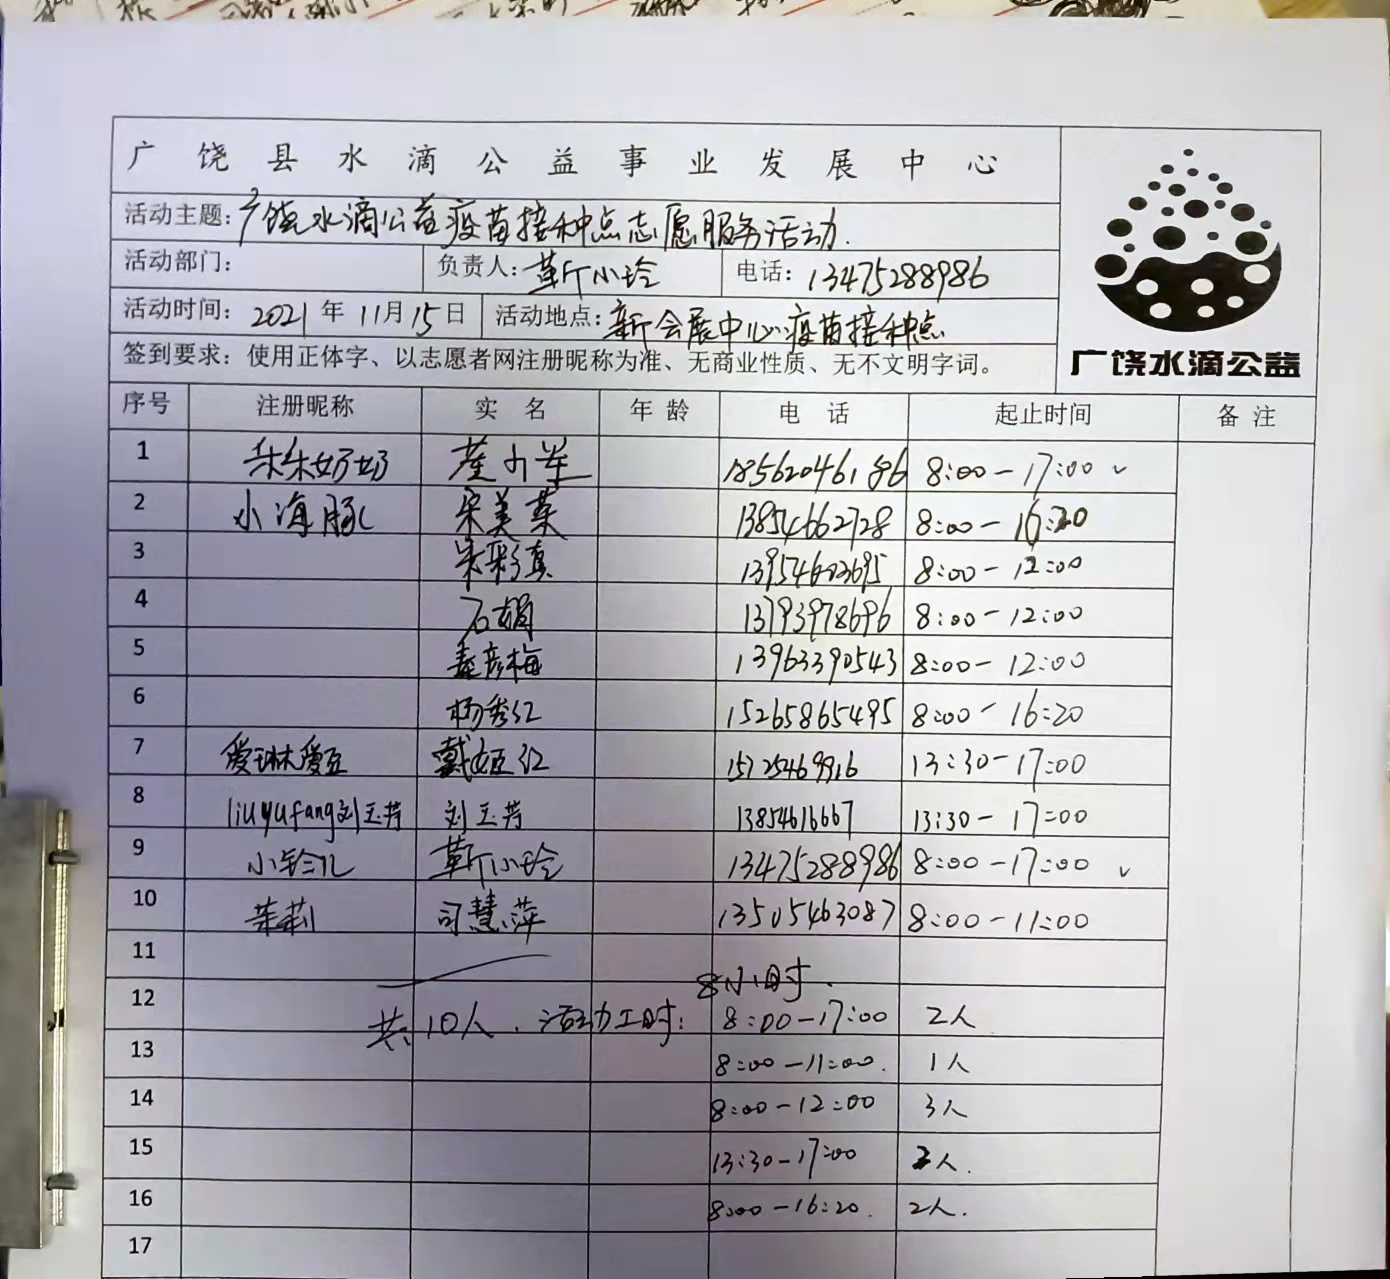 广饶县水滴公益事业发展中心
活动主题：广饶水滴公益疫苗接种点志愿服务活动.
活动部门： 负责人：靳小玲 电话：13475288986
活动时间：2021年11月15日 活动地点：新会展中心疫苗接种点
签到要求：使用正体字、以志愿者网注册昵称为准、无商业性质、无不文明字词。
广饶水滴公益
序号 注册昵称 实名 年龄 电话 起止时间 备注
1 朵朵奶奶 18562046186 8:00-17:00 ✓
2 小海豚 宋美英 13854662728 8:00-16:20
3 朱彩真 8:00-12:00
4 石娟 13793978696 8:00-12:00
5 彦梅 13963390543 8:00-12:00
6 杨秀红 15265865495 8:00-16:20
7 爱琳爱豆 戴姬红 15725469916 13:30-17:00
8 liuyufang刘玉芳 刘玉芳 13854616667 13:30-17:00
9 小铃儿 靳小玲 13475288986 8:00-17:00 ✓
10 茉莉 司慧萍 13505463087 8:00-11:00
11
8小时.
12 共:10人. 活动工时: 8:00-17:00 2人
13 8:00-11:00. 1人
14 8:00-12:00 3人
15 13:30-17:00 2人.
16 8:00-16:20. 2人.
17